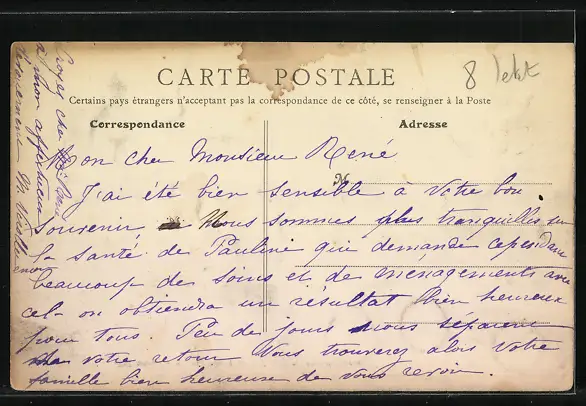 8 
CARTE POSTALE
Certains pays étrangers n'acceptant pas la correspondance de ce côté, se renseigner à la Poste
Correspondance
Adresse
M
Mon cher Monsieur René
J'ai été bien sensible à votre bon
souvenir, Nous sommes plus tranquilles sur
la santé de Pauline qui demande cependant
beaucoup de soins et de ménagements avec
cela on obtiendra un résultat bien heureux
pour tous. Peu de jours nous séparent
votre retour Vous trouverez alors votre
famille bien heureuse de vous revoir.
Croyez cher Mr René
à mon affectueux